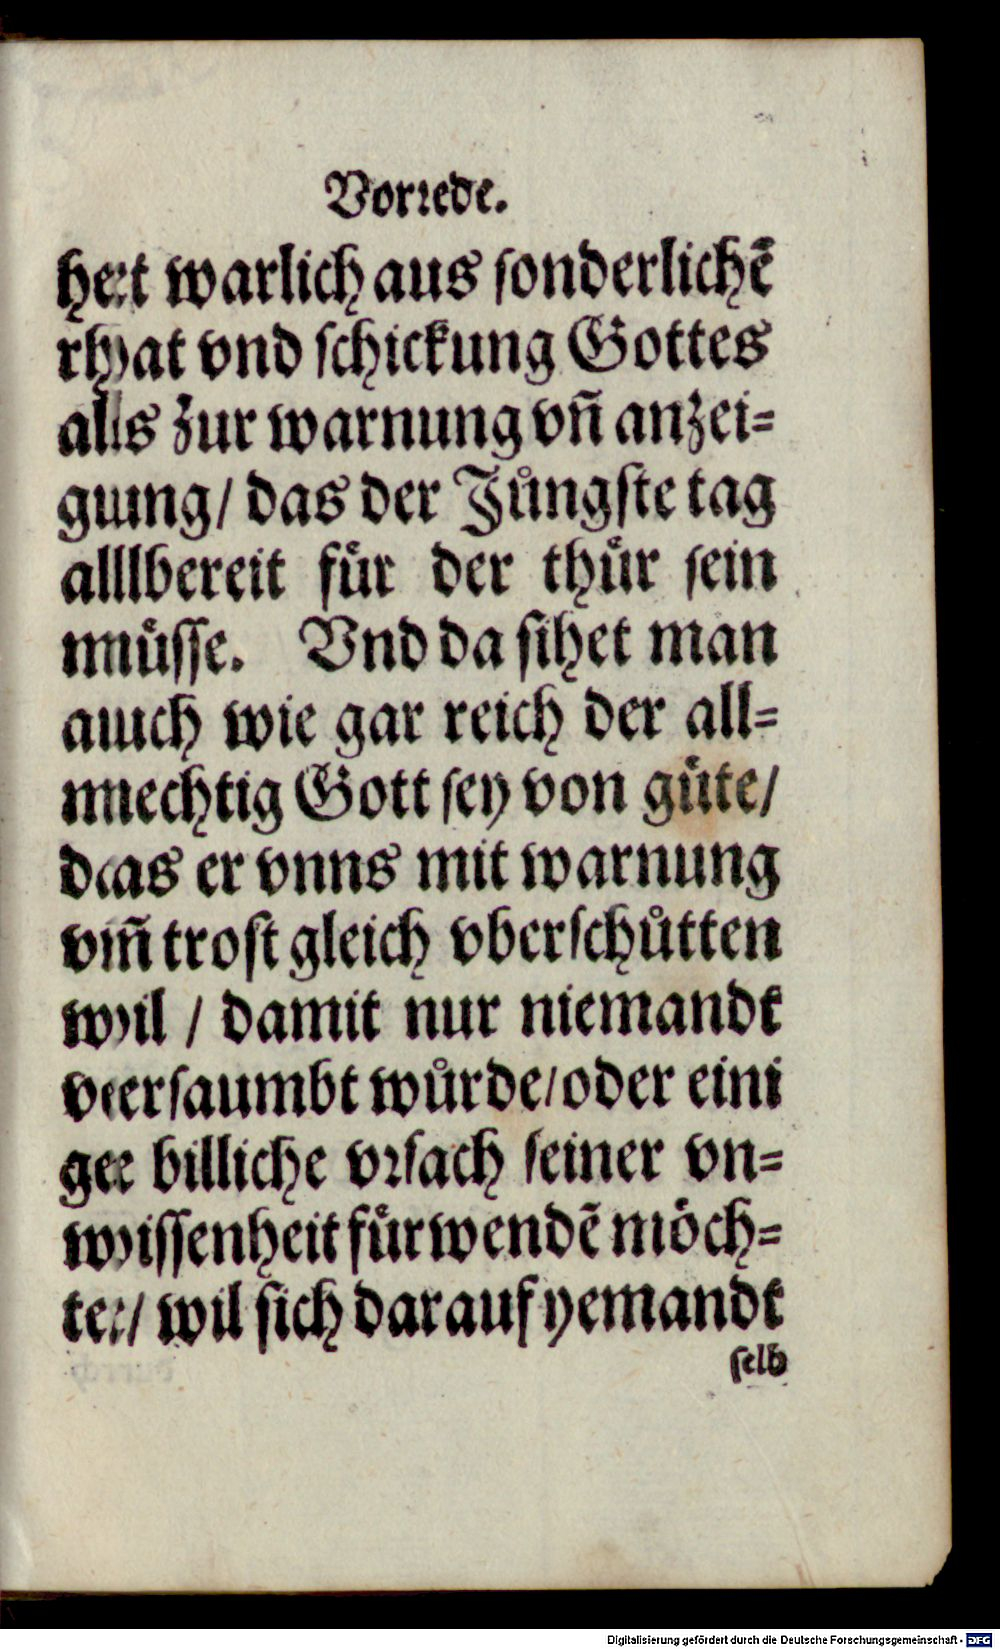 Vorrede.
hert warlich aus sonderlichē
rhat vnd schickung Gottes
alls zur warnung vñ anzei=
gung/ das der Jüngste tag
allbereit für der thür sein
müsse. Vnd da sihet man
auch wie gar reich der all=
mechtig Gott sey von güte/
das er vnns mit warnung
vñ trost gleich vberschütten
wil / damit nur niemandt
versaumbt würde/oder eini
ge billiche vrsach seiner vn=
wissenheit fürwendē möch=
te/ wil sich darauf yemandt
selb
Digitalisierung gefördert durch die Deutsche Forschungsgemeinschaft - DFG